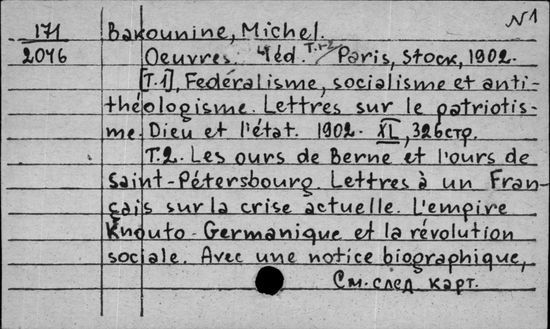 N1
171 Bakounine, Michel.
2046 Oeuvres. 4 éd. T.1-2 Paris, Stock, 1902.
[T.1], Fedéralisme, socialisme et anti-
théologisme. Lettres sur le patriotis-
me. Dieu et l'état. 1902. XL, 326 стр.
T.2. Les ours de Berne et l'ours de
Saint-Pétersbourg. Lettres à un Fran-
çais sur la crise actuelle. L'empire
Knouto-Germanique et la révolution
sociale. Avec une notice biographique,
См. след карт.